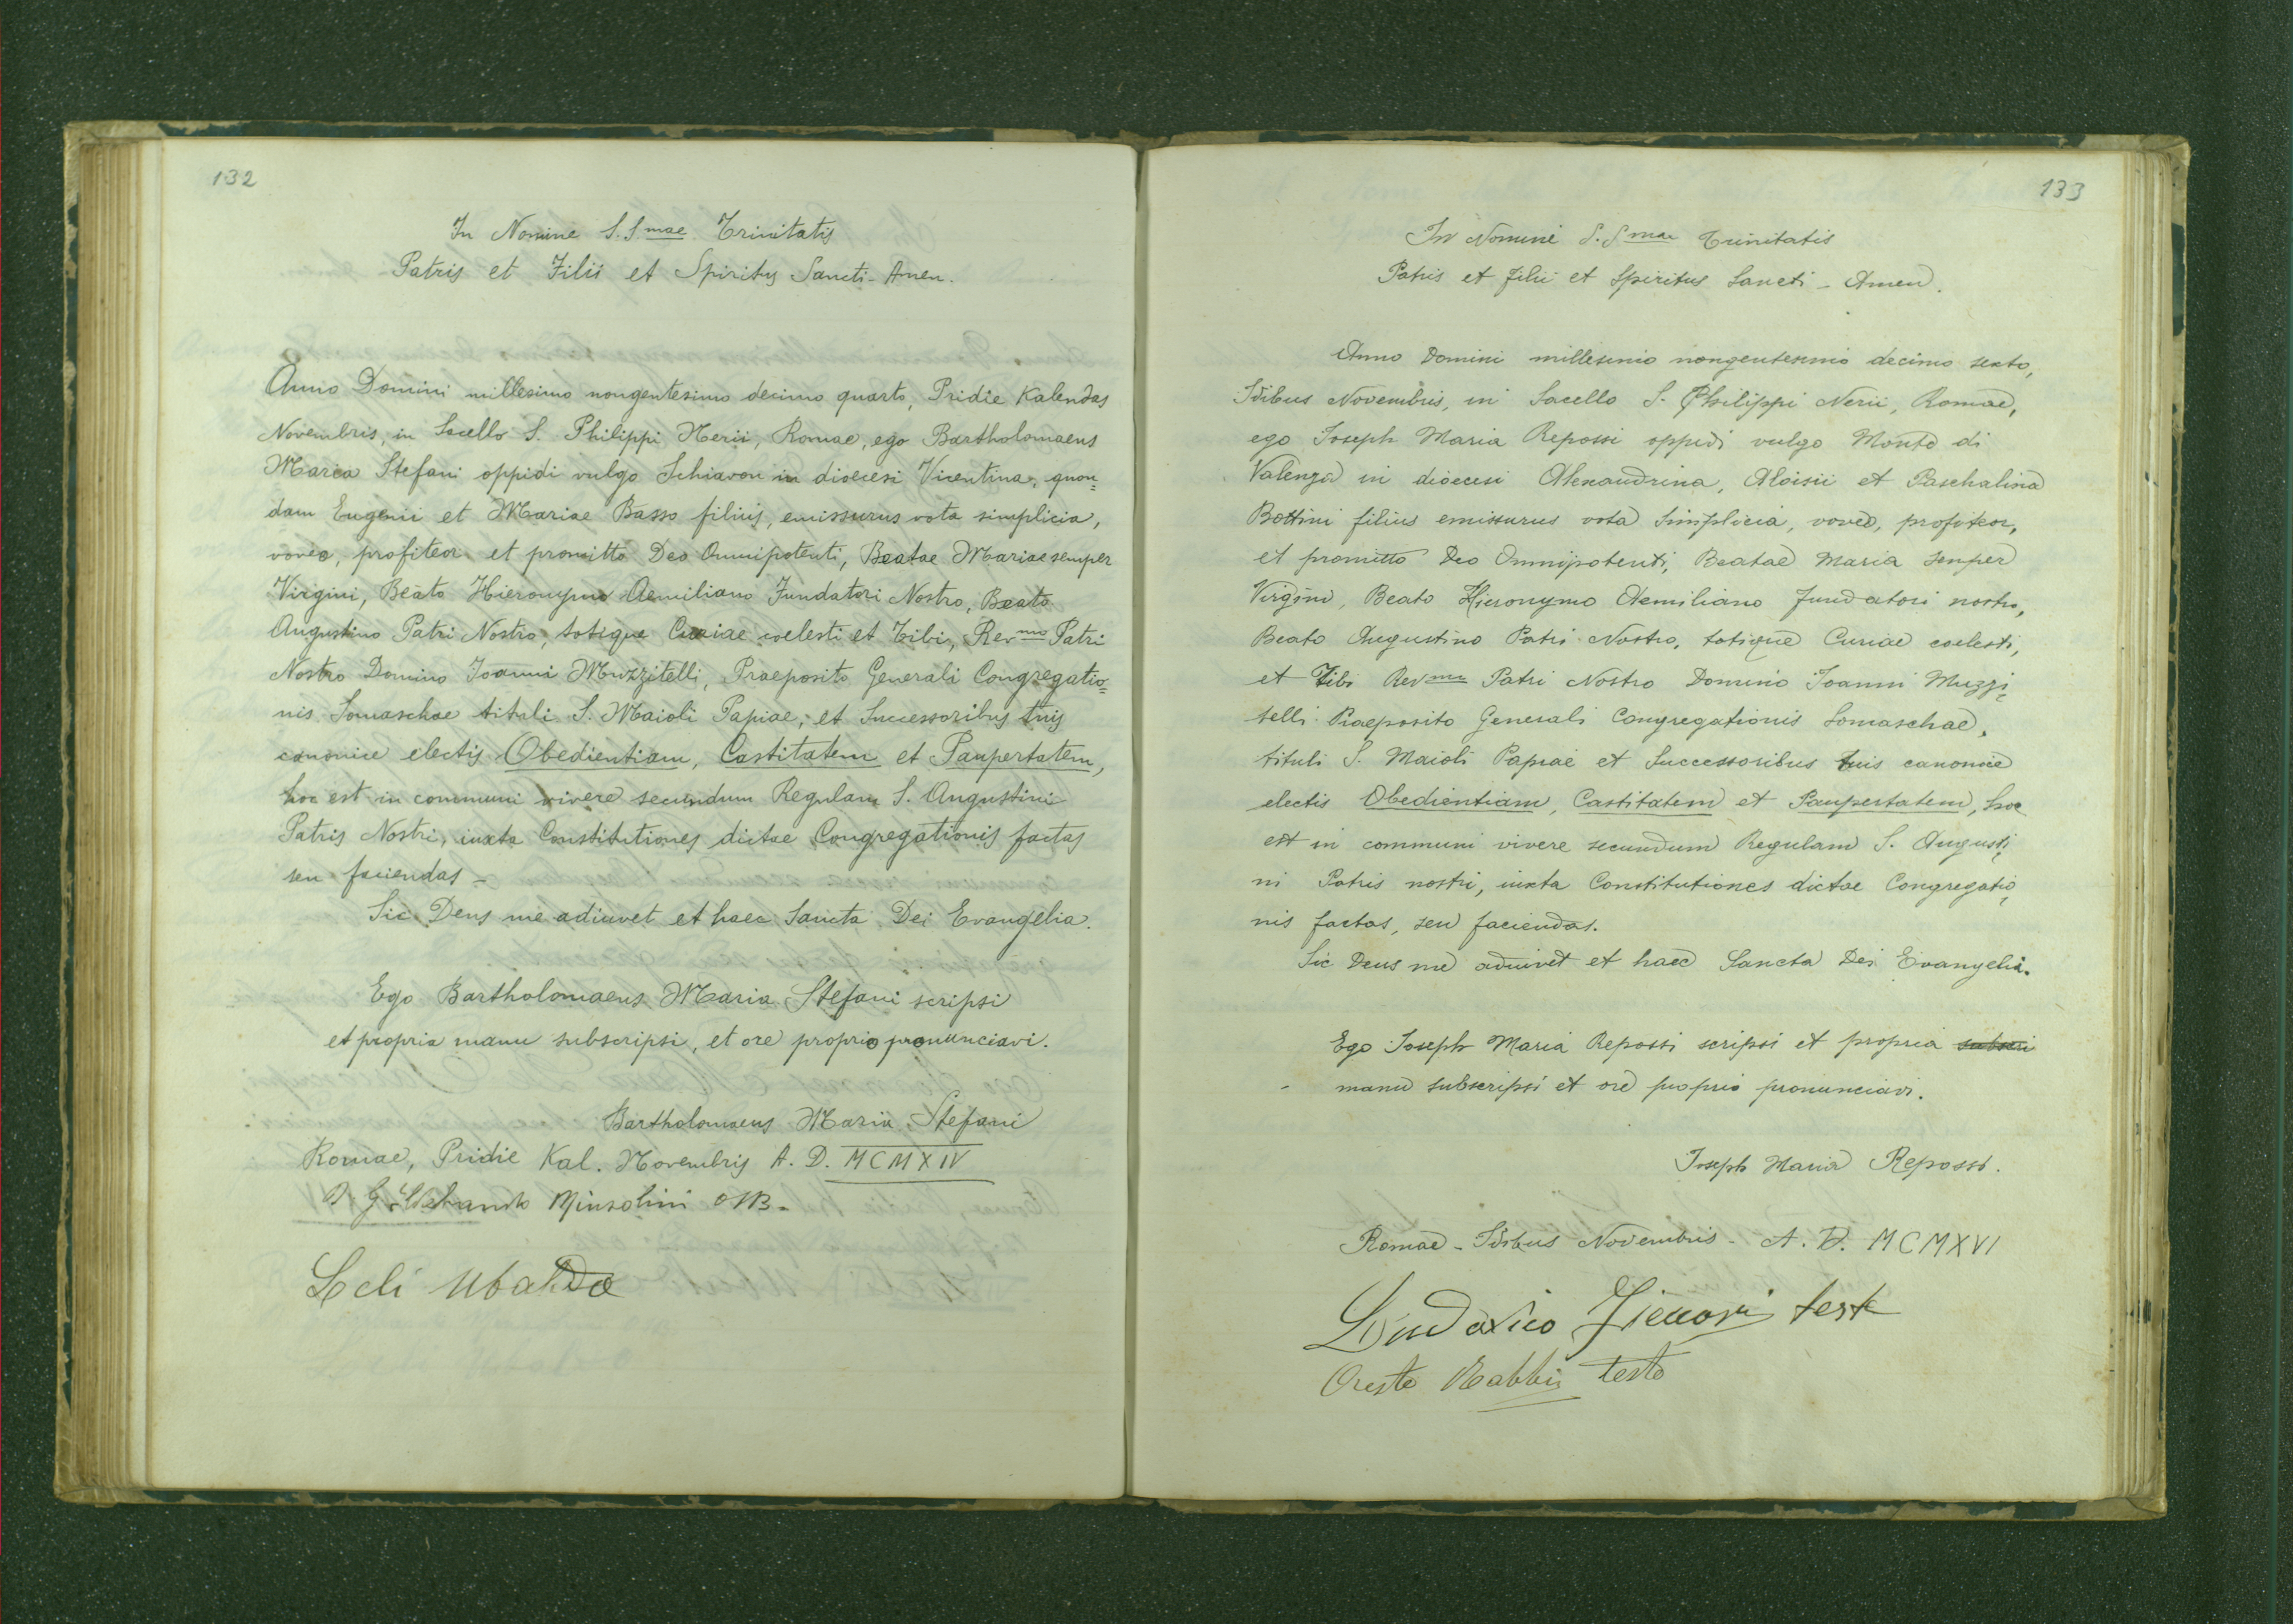 132
In Nomine S.S.mae Trinitatis
Patris et Filii et Spiritus Sancti - Amen.
Anno Domini millesimo nongentesimo decimo quarto, Pridie Kalendas
Novembris, in Sacello S. Philippi Nerii, Romae, ego Bartholomaeus
Maria Stefani oppidi vulgo Schiavon in dioecesi Vicentina, quon=
dam Eugenii et Mariae Basso filius, emissurus vota simplicia,
voveo, profiteor et promitto Deo Omnipotenti, Beatae Mariae semper
Virgini, Beato Hieronymo Aemiliano Fundatori Nostro, Beato
Augustino Patri Nostro, totique Curiae coelesti et Tibi, Rev.mo Patri
Nostro Domino Joanni Muzzitelli, Praeposito Generali Congregatio=
nis Somaschae tituli S. Maioli Papiae, et Successoribus tuis
canonice electis Obedientiam, Castitatem et Paupertatem,
hoc est in communi vivere secundum Regulam S. Augustini
Patris Nostri, iuxta Constitutiones dictae Congregationis factas
seu faciendas -
Sic Deus me adiuvet et haec Sancta Dei Evangelia.
Ego Bartholomaeus Maria Stefani scripsi
et propria manu subscripsi, et ore proprio pronunciavi.
Bartholomaeus Maria Stefani
Romae, Pridie Kal. Novembris A. D. MCMXIV
D. G. Minzolini
Leli Ubaldo
133
In Nomine S.Smae Trinitatis
Patris et Filii et Spiritus Sancti - Amen.
Anno Domini millesimo nongentesimo decimo sexto,
Idibus Novembris, in Sacello S. Philippi Nerii, Romae,
ego Joseph Maria Repossi oppidi vulgo Monte di
Valenza in dioecesi Alexandrina, Aloisii et Paschalina
Bottini filius emissurus vota simplicia, voveo, profiteor,
et promitto Deo Omnipotenti, Beatae Maria semper
Virgini, Beato Hieronymo Aemiliano Fundatori nostro,
Beato Augustino Patri Nostro, totique Curiae coelesti,
et Tibi Rev.mo Patri Nostro Domino Joanni Muzzi=
telli Praeposito Generali Congregationis Somaschae,
tituli S. Maioli Papiae et Successoribus tuis canonice
electis Obedientiam, Castitatem et Paupertatem, hoc
est in communi vivere secundum Regulam S. Augusti=
ni Patris nostri, iuxta Constitutiones dictae Congregatio=
nis factas, seu faciendas.
Sic Deus me adiuvet et haec Sancta Dei Evangelia.
Ego Joseph Maria Repossi scripsi et propria subscri
manu subscripsi et ore proprio pronunciavi.
Joseph Maria Repossi.
Romae - Idibus Novembris - A. D. MCMXVI
Ludovico teste
Oreste teste